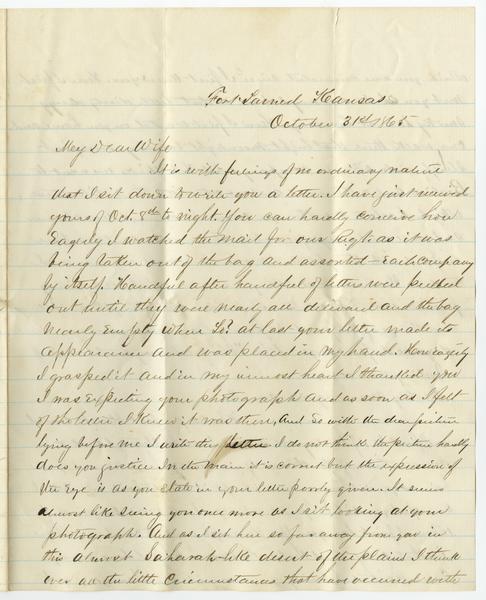 Fort Larned Kansas
October 31st 1865
My Dear Wife
It is with feelings of no ordinary nature
that I sit down to write you a letter. I have just received
yours of Oct. 8th to night. You can hardly conceive how
Eagerly I watched the Mail for our Regt. as it was
being taken out of the bag and assorted - Each Company
by itself. Handful after handful of letters were pulled
out until they were nearly all delivered and the bag
nearly Empty when Lo! at last your letter made its
appearance and was placed in my hand. How eagerly
I grasped it and in my inmost heart I thanked you
I was expecting your photograph and as soon as I felt
of the letter I knew it was there, And so with the dear picture
lying before me I write this letter I do not think the picture hardly
does you justice In the main it is correct but the expression of
the Eye is as you state in your letter poorly given. It seems
almost like seeing you once more as I sit looking at your
photograph. And as I sit here so far away from you in
this almost Saharah-like desert of the plains I think
over all the little Circumstances that have occurred with